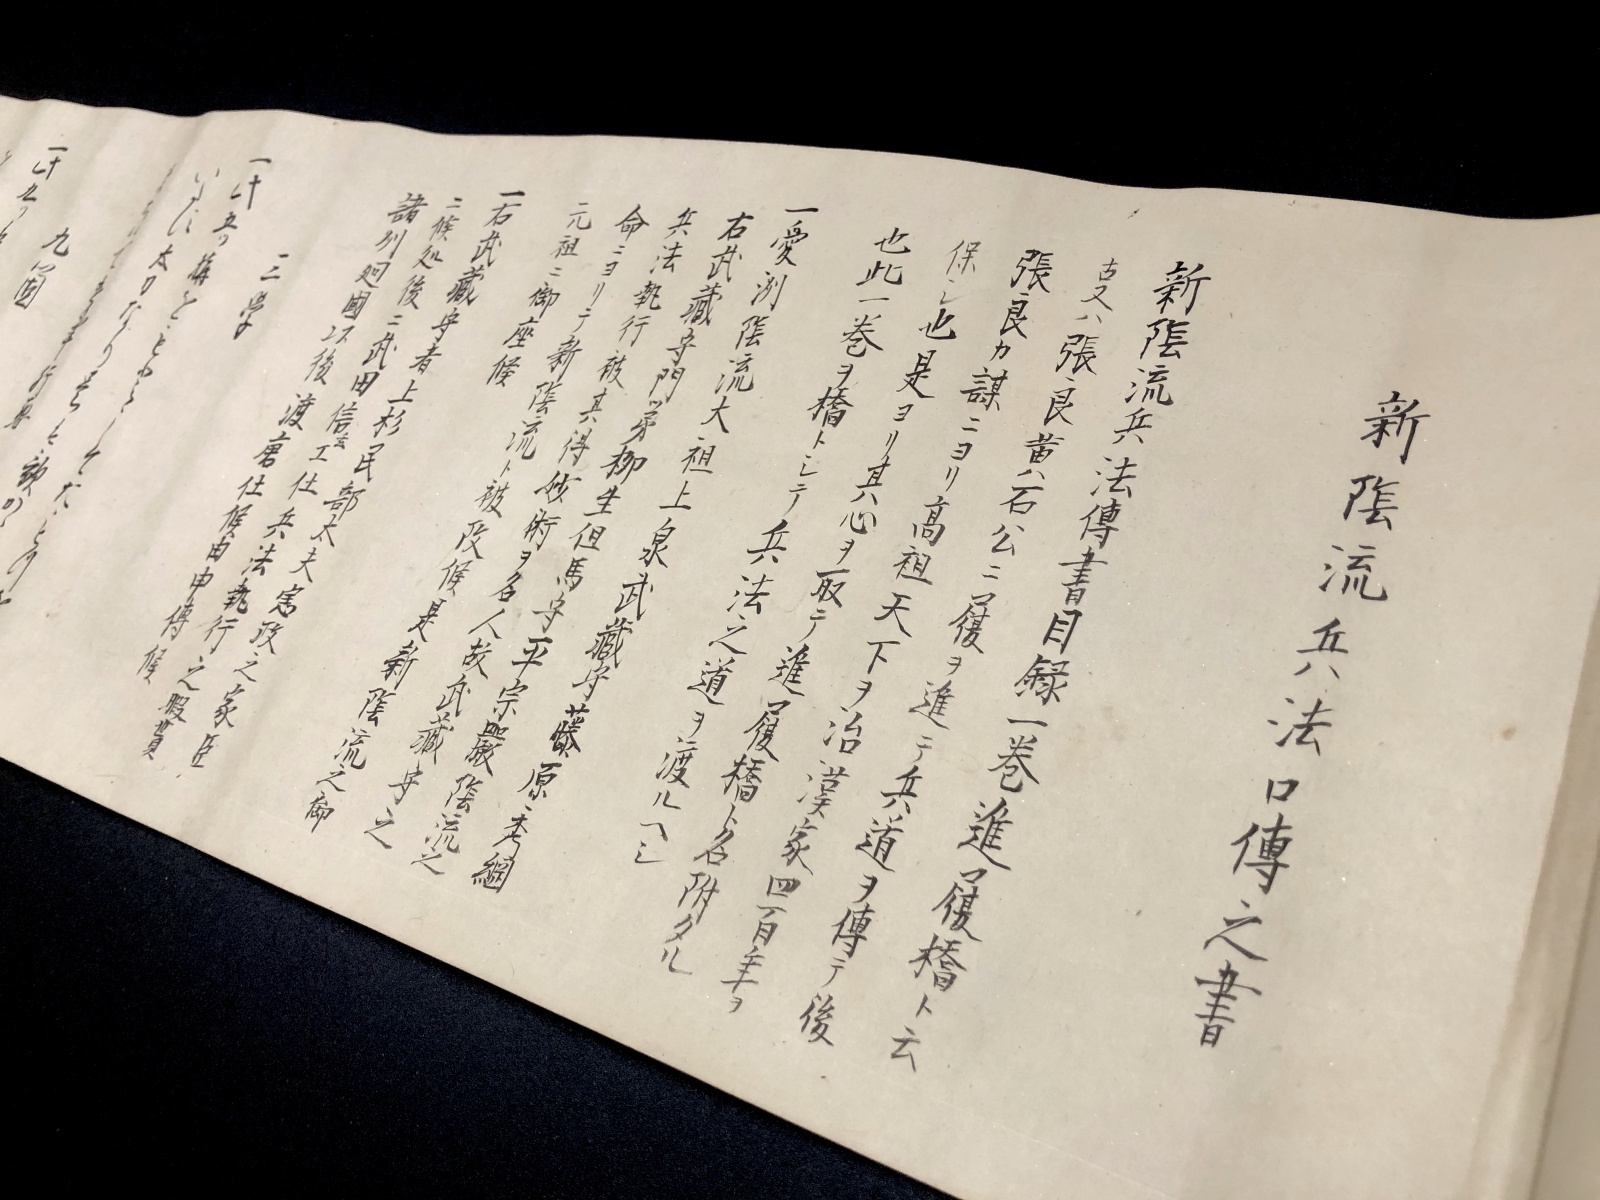 新陰流兵法口傳之書
新陰流兵法傳書目録一巻進履橋ト云
古又ハ張良黄石公ニ履ヲ進テ兵道ヲ傳テ後
張良カ謀ニヨリ高祖天下ヲ治漢家四百年ヲ
保シ也是ヨリ其心ヲ取テ進履橋ト名附タル
也此一巻ヲ橋トシテ兵法之道ヲ渡ルヘシ
一愛洲陰流大祖上泉武藏守藤原秀綱
右武藏守門弟柳生但馬守平宗嚴陰流之
兵法執行被其得妙術ヲ名人故武藏守之
命ニヨリテ新陰流ト被改候是新陰流之御
元祖ニ御座候
一右武藏守者上杉民部太夫憲政之家臣
ニ候処後ニ武田信玄エ仕兵法執行之暇貰
諸列廻國以後渡唐仕候由申傳候
三学
九箇